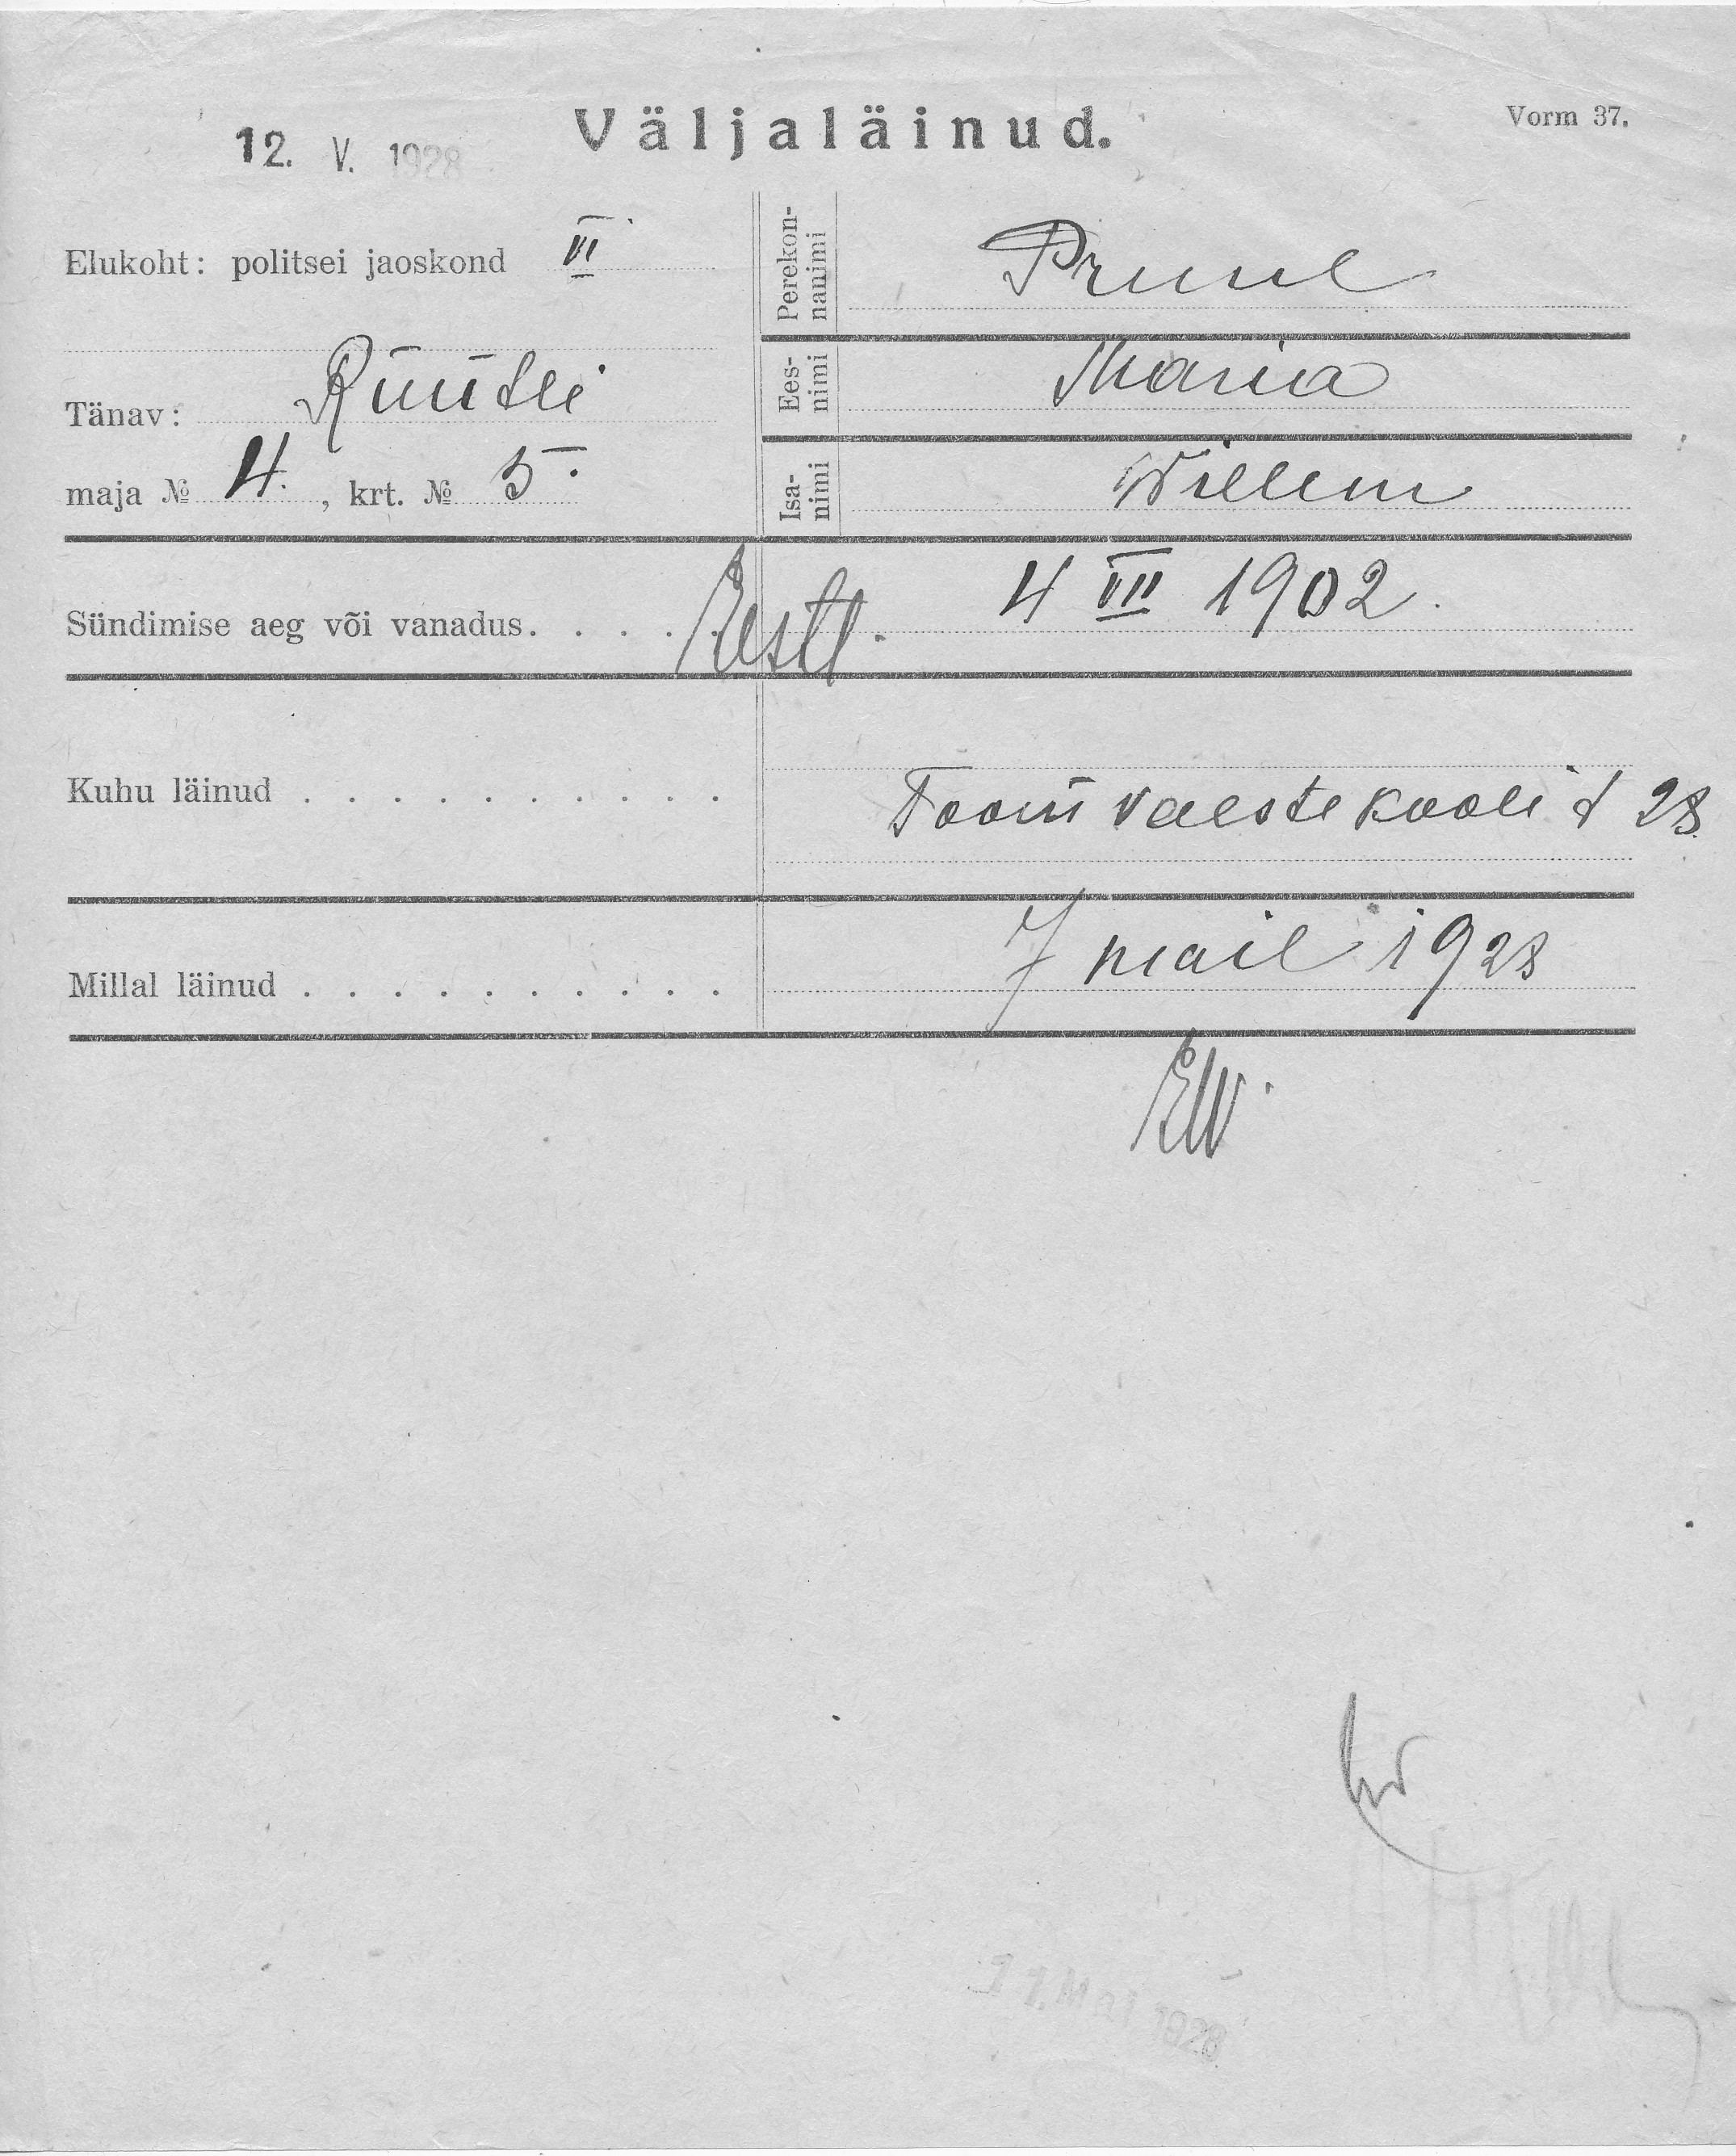 Väljaläinud.
Vorm 37.
12. V. 1928
Elukoht: politsei jaoskond VI
Tänav: Rüütli
maja № 4. , krt. № 5.
Perekon-
nanimi
Ees-
nimi Maria
Isa-
nimi Willem
Sündimise aeg või vanadus. . . . . Eestl. 4 VII 1902.
Kuhu läinud . . . . . . . . . . Toom vaestekooli t 28.
Millal läinud . . . . . . . . . . 7 mail 1928
EW.
11. Mai 1928